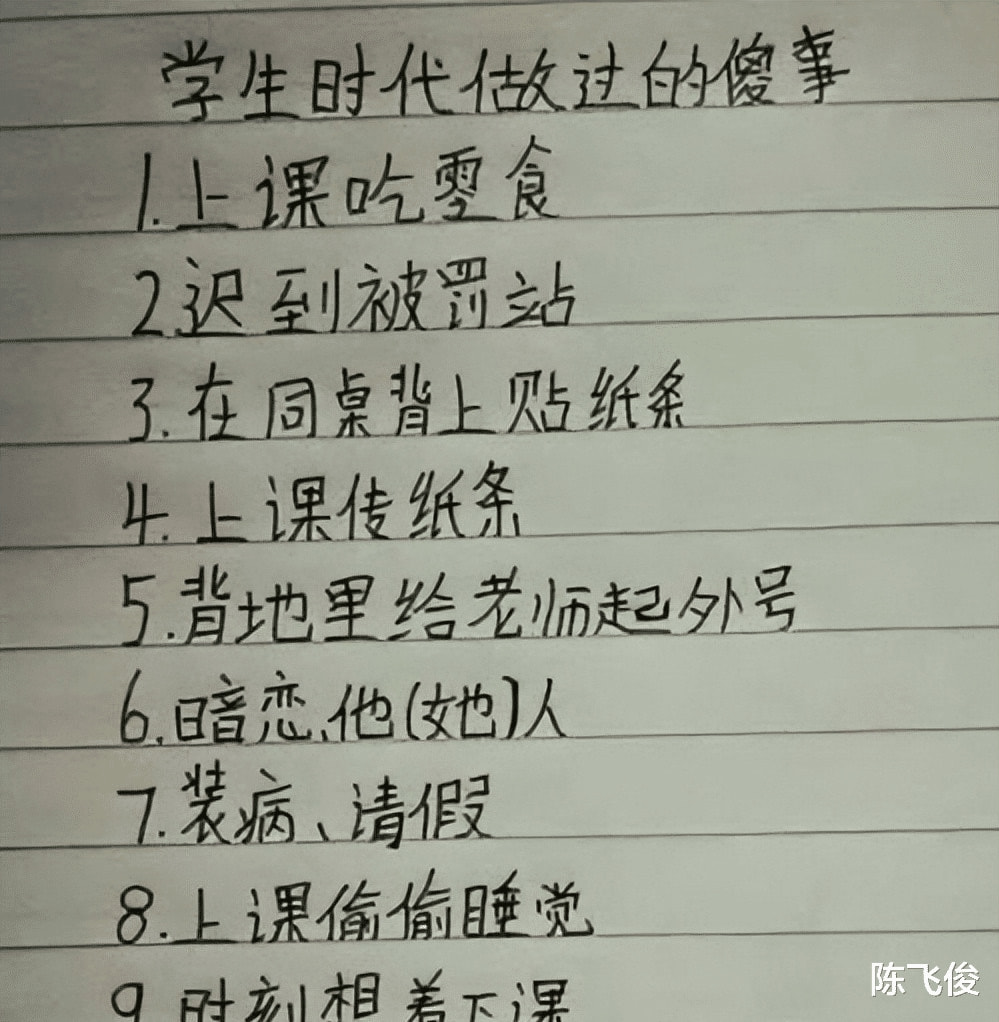 学生时代做过的傻事
1.上课吃零食
2.迟到被罚站
3.在同桌背上贴纸条
4.上课传纸条
5.背地里给老师起外号
6.暗恋.他(她)人
7.装病、请假
8.上课偷偷睡觉
9.时刻相着下课
陈飞俊